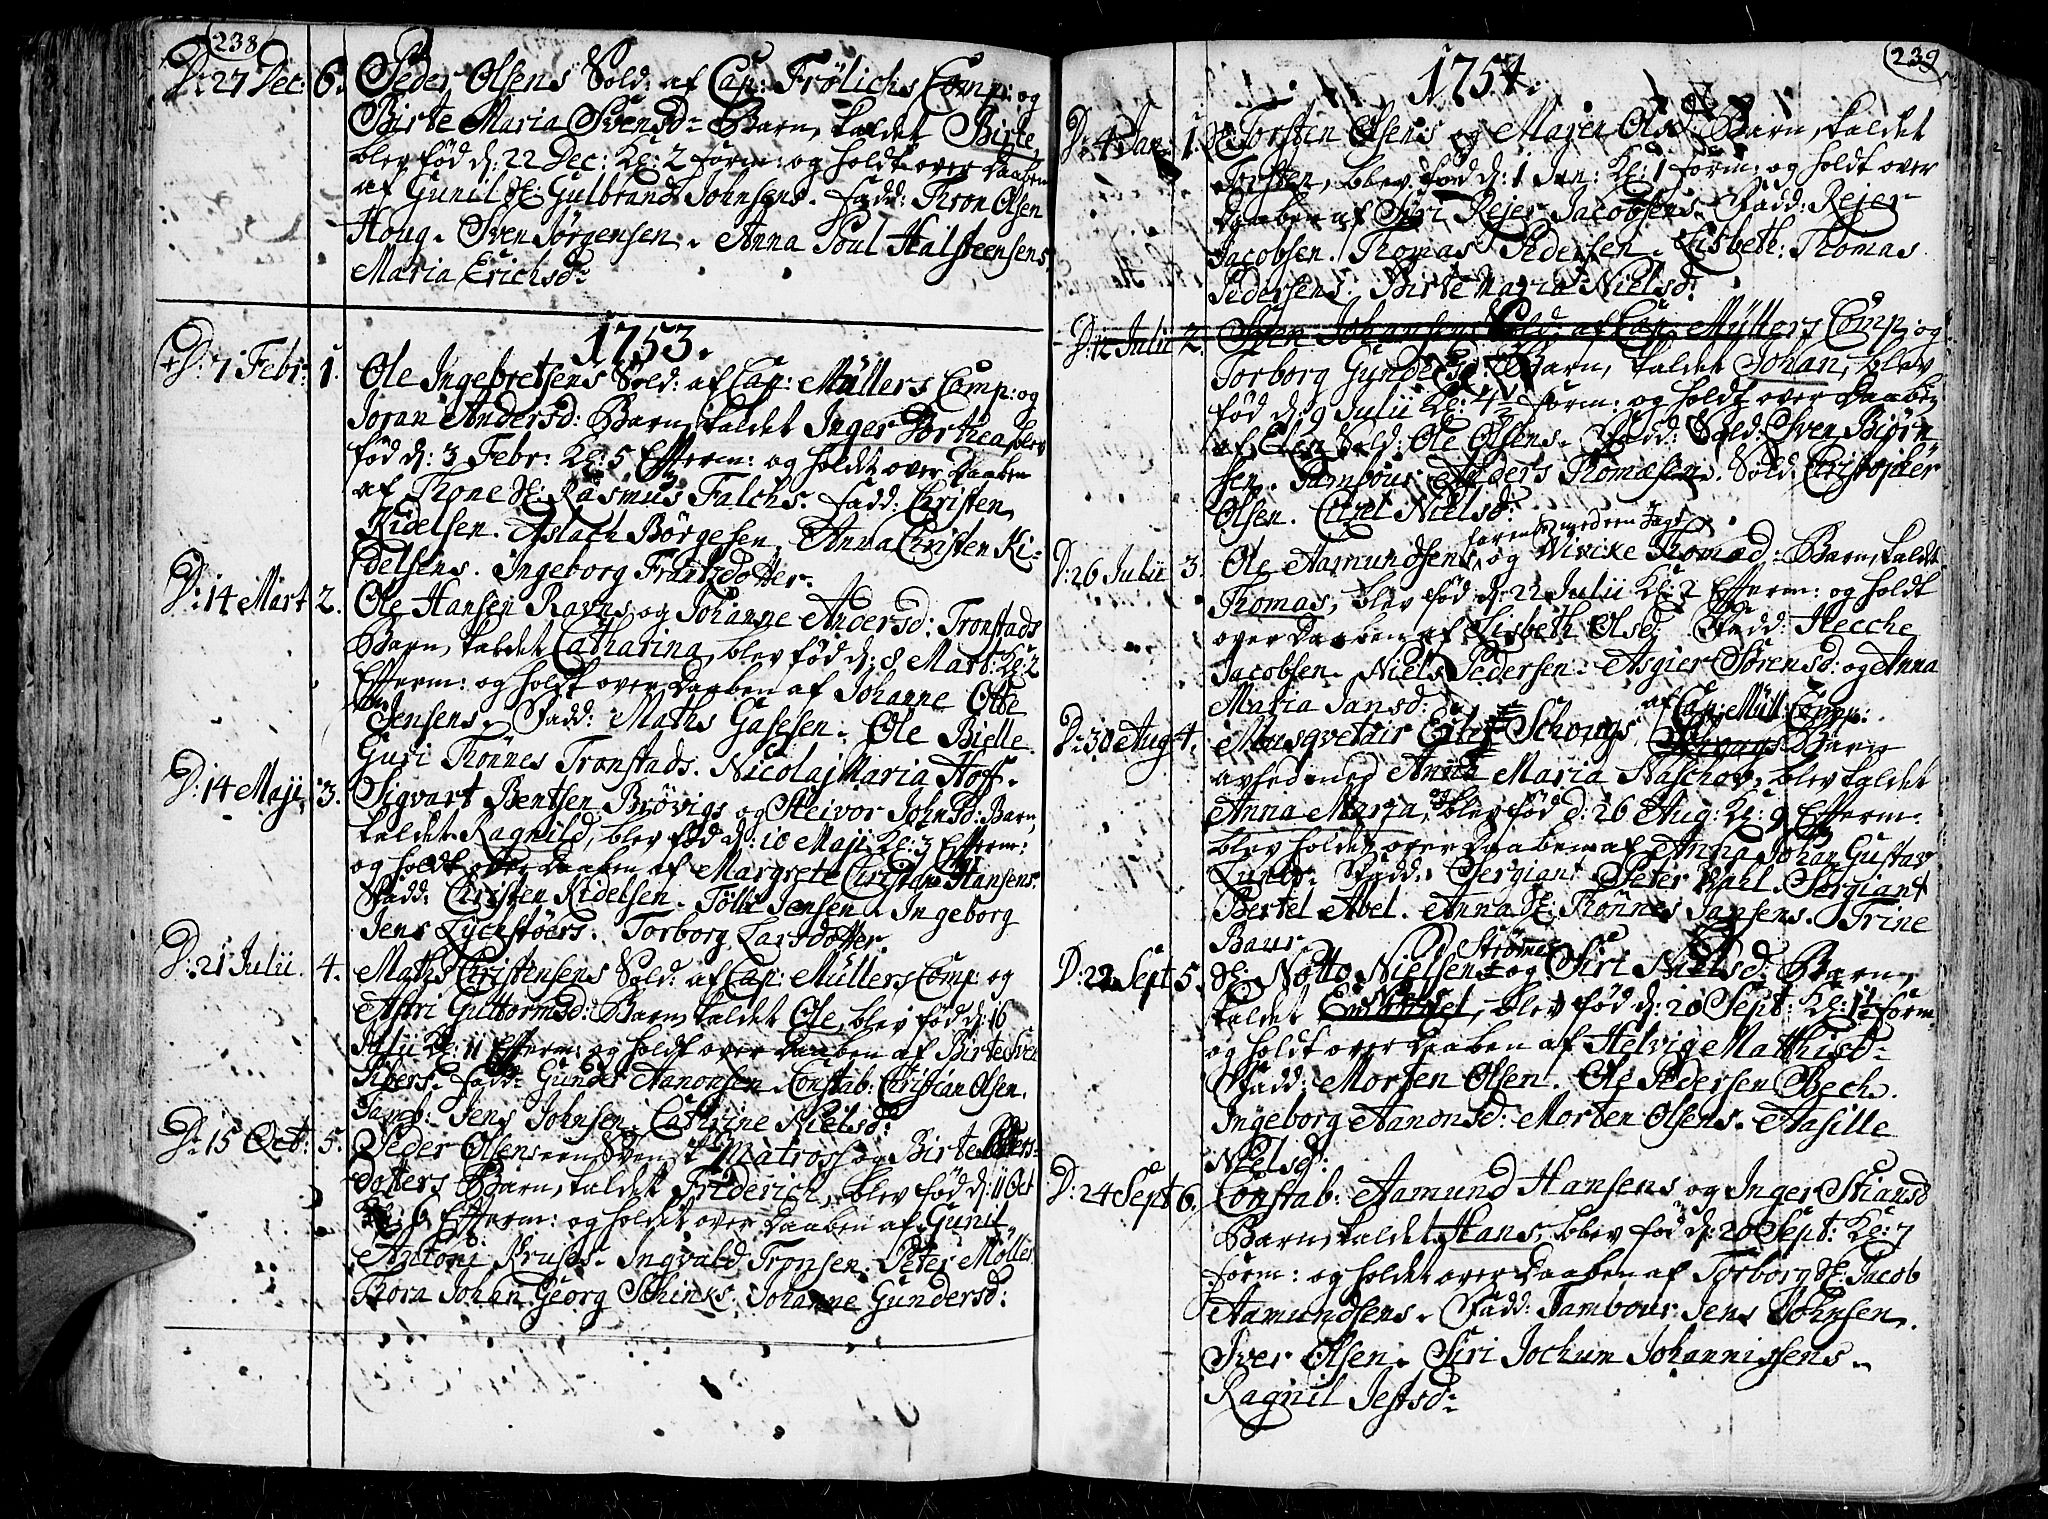 238
D: 27 Dec: 6. Peder Olsens Sold: af Cap: Frölichs Comp: og
Birte Maria Svensd: Barn, kaldet Birte,
blev föd d: 22 Dec: Kl: 2 form: og holdt over Daaben
af Gunil Sl: Gulbrand Johnsens. Fadd: Tron Olsen
Houg. Sven Jörgensen. Anna Poul Halsteensens.
Maria Erichsd:
1753.
D: 7 Febr: 1. Ole Ingebretsens Sold: af Cap: Müllers Comp: og
Joran Andersd: Barn, kaldet Inger Dorthea, blev
föd d: 3 Febr: Kl: 5 Efterm: og holdt over Daaben
af Trone Sl: Rasmus Falchs. Fadd: Christen
Kidelsen. Aslach Börgesen. Anna Christen Ki-
delsens. Ingeborg Frantzdotter.
D: 14 Mart 2. Ole Hansen Ravns og Johanne Andersd: Tronstads
Barn, kaldet Catharina, blev föd d: 8 Mart: Kl: 2
Efterm: og holdt over Daaben af Johanne Ole
Jensens. Fadd: Maths Gasesen. Ole Bielle.
Guri Tönnes Tronstads. Nicolaj Maria Hoff.
D: 14 Maji, 3. Sigvart Bentsen Brövigs og Steivor Johnsd: Barn,
kaldet Ragnild, blev föd d: 10 Maji Kl: 3 Efterm:
og holdt over Daaben af Margrete Christen Hansens.
Fadd: Christen Kidelsen. Tölli Jensen. Ingeborg
Jens Lychstöers. Torborg Larsdotter.
D: 21 Julii. 4. Maths Christensens Sold: af Cap: Müllers Comp og
Astri Guttormsd: Barn, kaldet Ole, blev föd d: 16
Julii Kl: 11 Efterm: og holdt over Daaben af Birte Iver
Fibers. Fadd: Gunder Aanonsen. Constab: Christian Olsen.
Tamb: Jens Johnsen. Cathrine Nielsd:
D: 15 Oct: 5. Peder Olsens en Svensk Matros og Birte
dotters Barn, kaldet Friderich, blev föd d: 11 Oct
Kl: 6 Efterm: og holdet over Daaben af Gunil
Antonj Kruses. Ingvald Tronsen. Peter Möller.
Tora Johan Georg Schinks. Johanne Gundersd:
239
1754.
D: 4 Jan: 1. Sl: Torsten Olsens og Maren Olsd: Barn, kaldet
Torsten, blev föd d: 1 Jan: Kl: 1 form: og holdt over
Daaben af Siri Rejer Jacobsens. Fadd: Rejer
Jacobsen. Thomas Pedersen. Lisbeth: Thomas
Pedersens. Birte Maria Nielsd:
D: 12 Julii 2. Sven Johansens Sold: af Cap: Müllers Comp: og
Torborg Gundersd: Barn, kaldet Johan, blev
föd d: 9 Julii Kl: 4½ form: og holdt over Daaben
af Elen Sold: Ole Olsens. Fadd: Sold: Sven Biörn-
sen. Tambour Anders Thomæsen. Sold Christopher
Olsen. Cizel Nielsd:
D: 26 Julii 3. Ole Aamundsens og Wivike Thomæd: Barn, kaldt
Thomas, blev föd d: 22 Julii Kl: 2 Efterm: og holdt
over Daaben af Lisbeth Olsd: Fadd: Hecche
Jacobsen. Niels Pedersen. Asgier Sörensd: og Anna
Maria Jansd:
af Cap: Müll: Comp:
D: 30 Aug 4. Mousqvetair Eiler Schougs Barn
avled med Anna Maria Naschov, blev kaldet
Anna Maria, blev föd d: 26 Aug: Kl: 9 Efterm.
blev holdet over Daaben af Anna Johan Gustav
Lunds. Fadd: Sergiant Peter Wahl. Sergiant
Bertel Abel. Anna Sl: Tönnes Jansens. Trine
Baur
D: 22 Sept 5. Sl: Notto Nielsens Strömes og Siri Nielsd: Barn,
kaldet Niels, blev föd d: 20 Sept: Kl: 1½ form
og holdt over Daaben af Helvig Matthisd:
Fadd: Morten Olsen. Ole Pedersen Bech.
Ingeborg Aanonsd: Morten Olsens. Aasille
Nielsd:
D: 24 Sept 6. Constab: Aamund Hansens og Inger Stiansd
Barn, kaldet Hans, blev föd d: 20 Sept: Kl: 7
form: og holdet over Daaben af Torborg Sl: Jacob
Aamundsens. Fadd: Tambour Jens Johnsen.
Iver Olsen. Siri Jochum Johannissens.
Ragnil Jestsd: